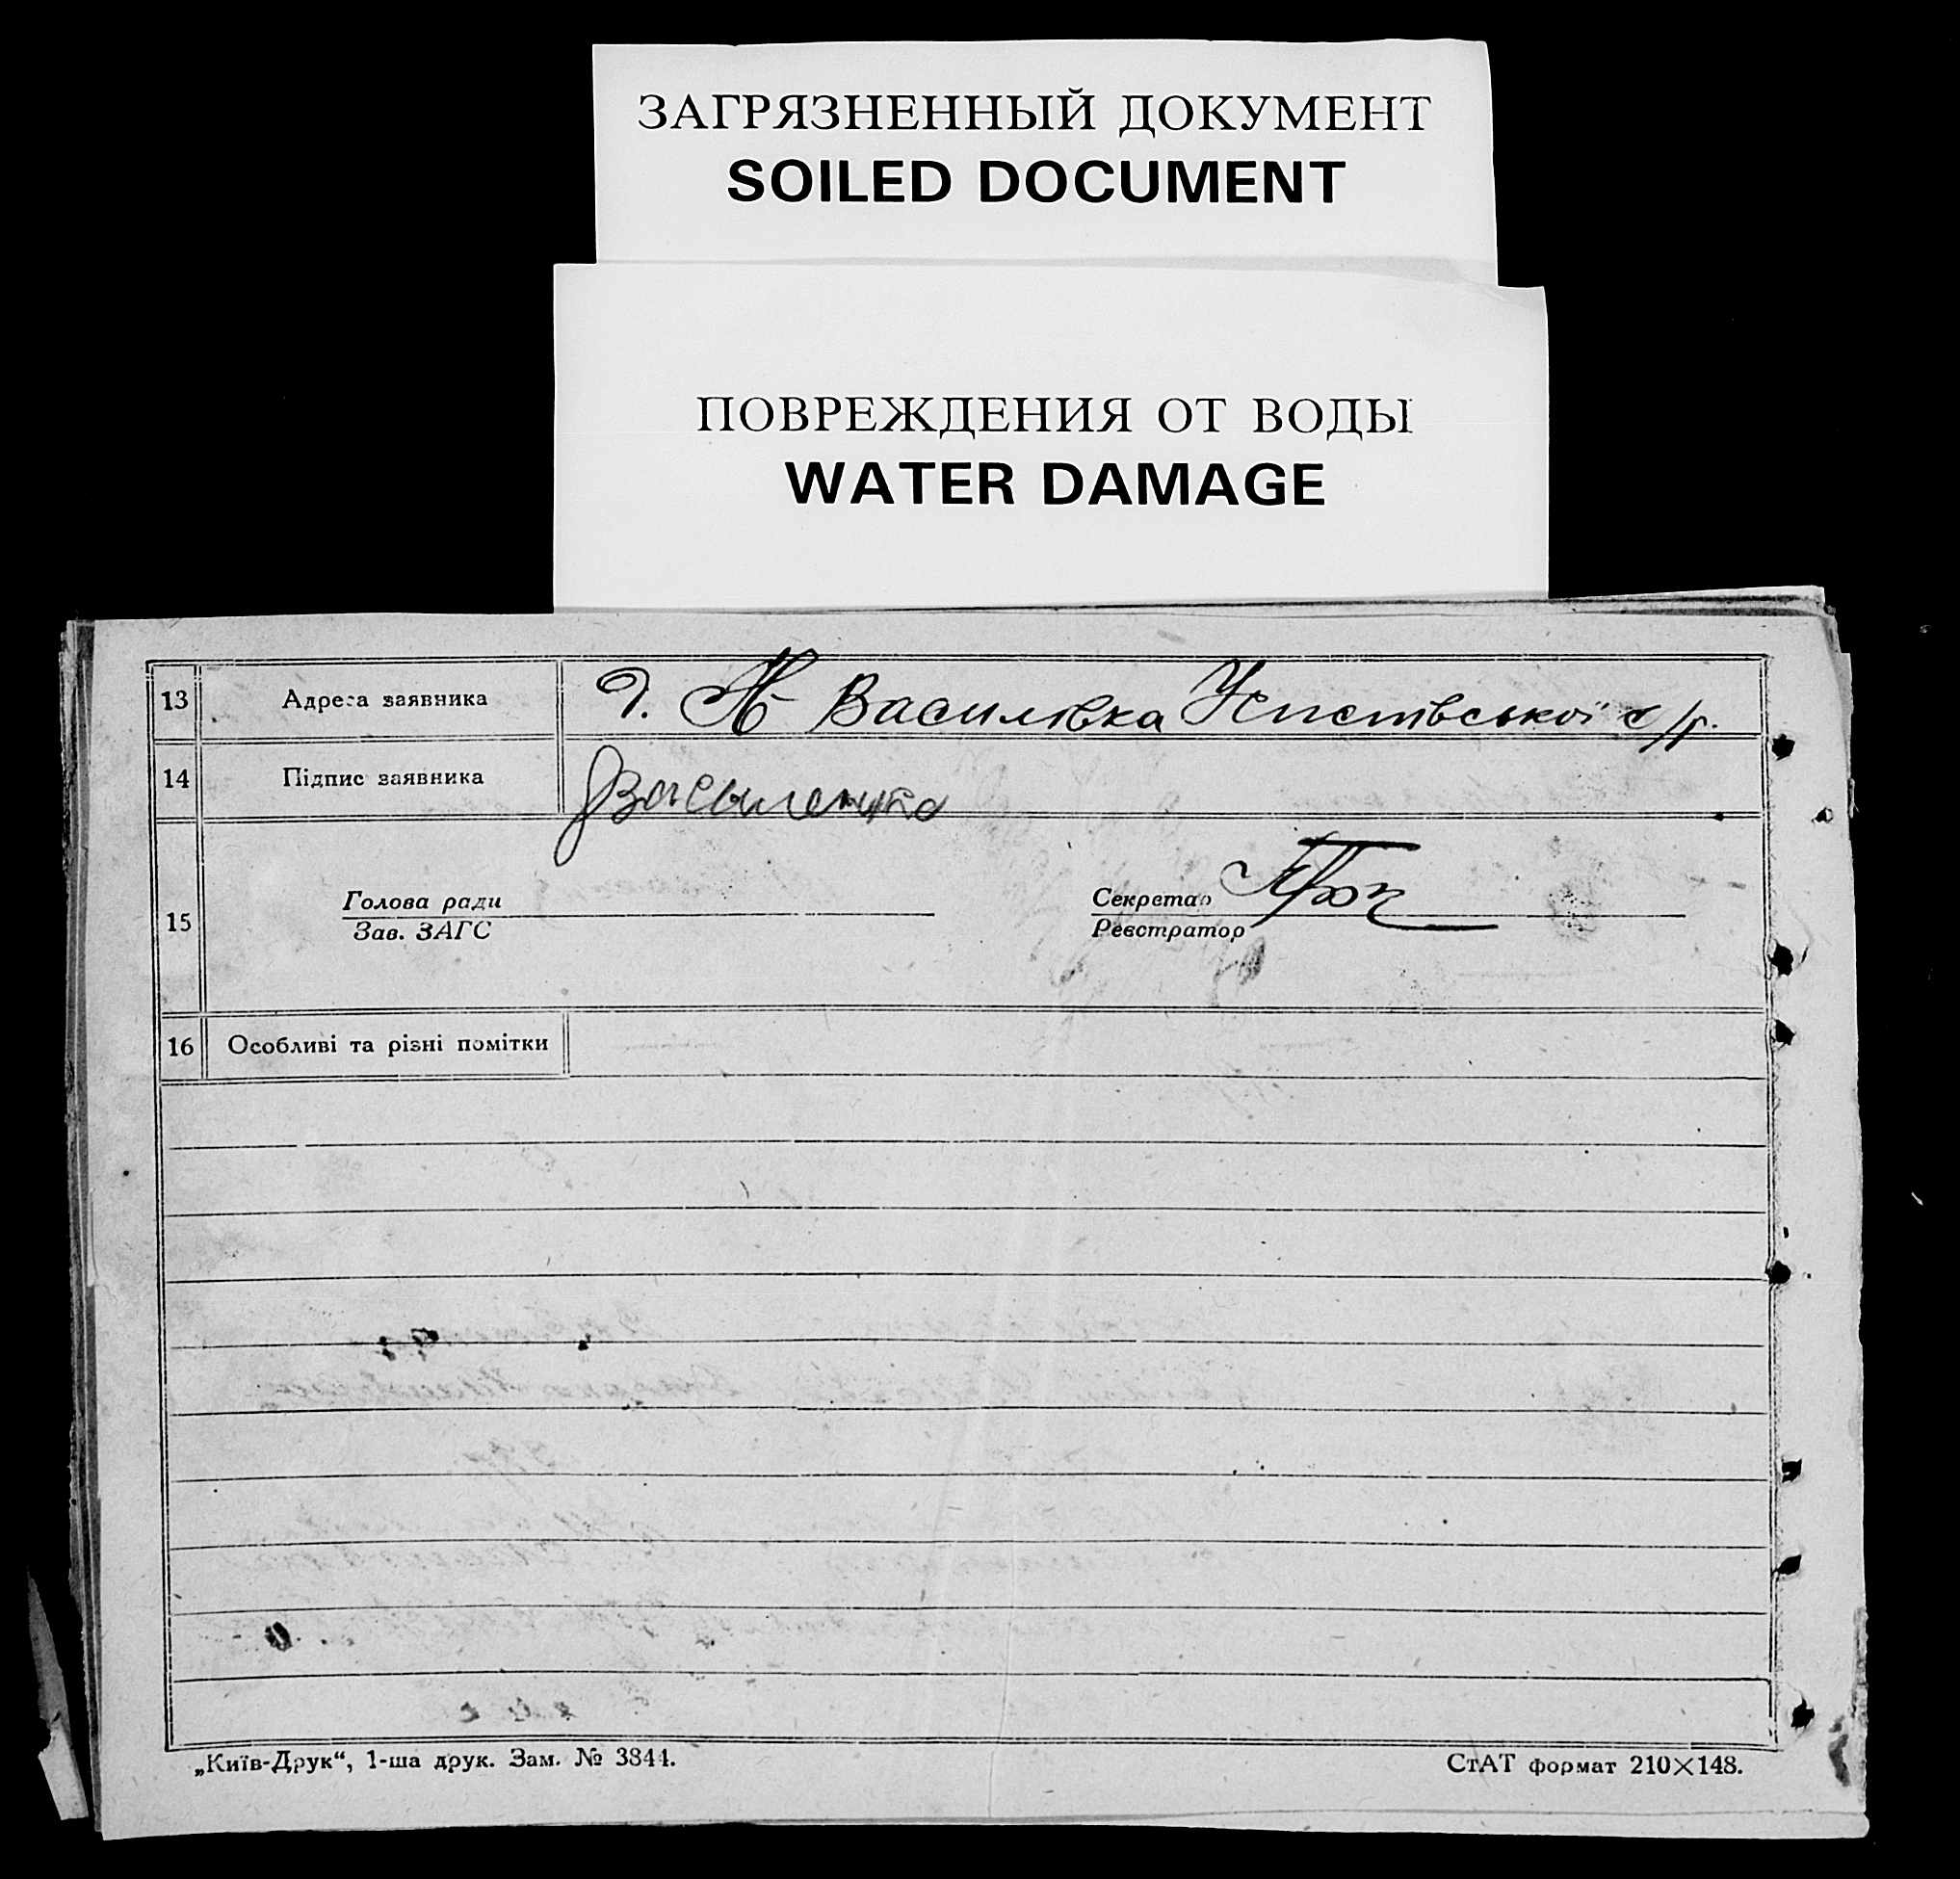 ЗАГРЯЗНЕННЫЙ ДОКУМЕНТ
SOILED DOCUMENT
ПОВРЕЖДЕНИЯ ОТ ВОДЫ
WATER DAMAGE
13 Адреса заявника Василівка с/р.
14 Підпис заявника Василенко
15 Голова ради Секретар
Зав. ЗАГС Реєстратор
16 Особливі та різні помітки
„Київ-Друк“, 1-ша друк. Зам. № 3844. СтАТ формат 210×148.